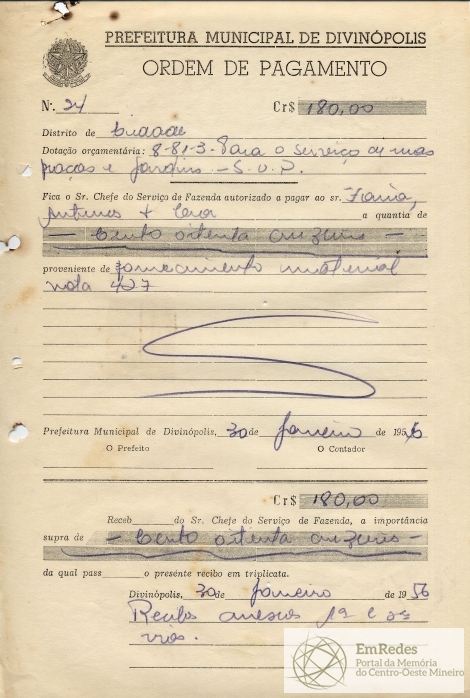 PREFEITURA MUNICIPAL DE DIVINÓPOLIS
ORDEM DE PAGAMENTO
N.º 24 Cr$ 180,00
Distrito de Cidade
Dotação orçamentária: 8-81-3-Para o serviço de ruas
praças e Jardins. - S.U.P.
Fica o Sr. Chefe do Serviço de Fazenda autorizado a pagar ao sr. Faria,
Antunes + Cia a quantia de
- Cento oitenta cruzeiros -
proveniente de fornecimento material
nota 427
Prefeitura Municipal de Divinópolis, 30 de Janeiro de 1956
O Prefeito O Contador
Cr$ 180,00
Receb do Sr. Chefe do Serviço de Fazenda, a importância
supra de - Cento oitenta cruzeiros -
da qual pass o presente recibo em triplicata.
Divinópolis, 30 de Janeiro de 1956
Recibos anexos 1ª e 2ª
vias.
EmRedes
Portal da Memória
do Centro-Oeste Mineiro